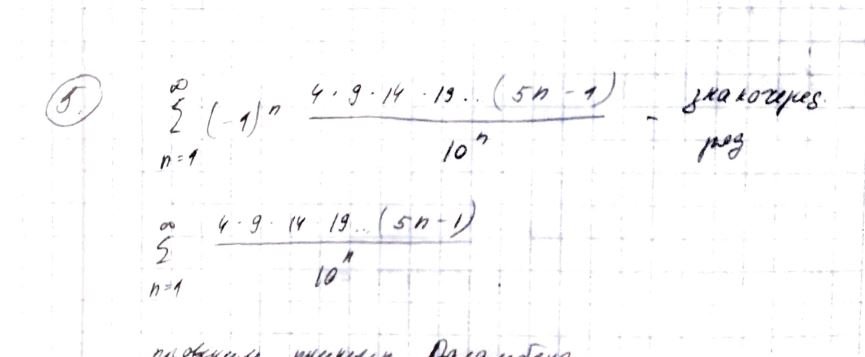 5. ∞ Σ n=1 (-1)^n 4·9·14·19..(5n-1) / 10^n - знакочеред.
ряд
∞ Σ n=1 4·9·14·19..(5n-1) / 10^n